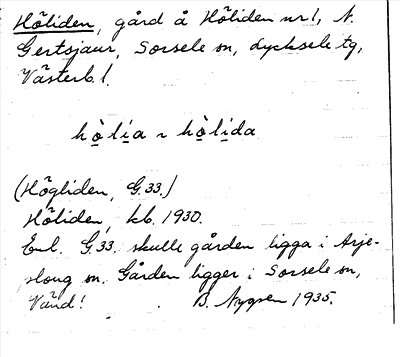 Höliden, gård å Höliden nr 1, N.
Gertsjaur, Sorsele sn, Lycksele tg,
Västerb. l.
hò̱li̱a ~ hò̱li̱da
(Högliden, G. 33.)
Höliden, kb. 1930.
Enl. G. 33. skulle gården ligga i Arje-
ploug sn. Gården ligger i Sorsele sn,
Vänd! B. Nygren 1935.